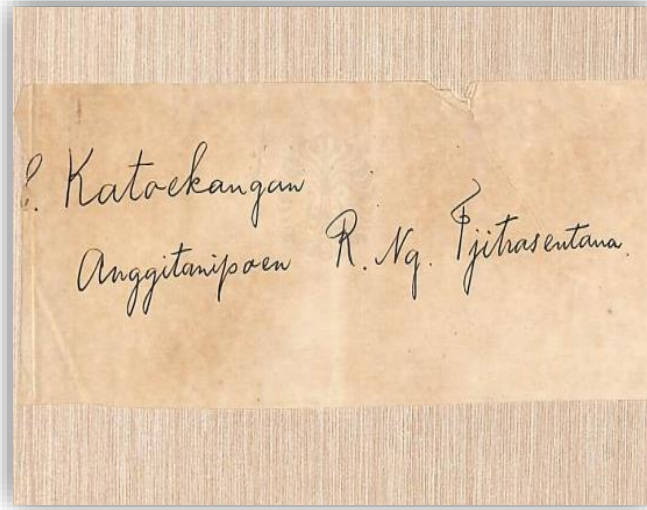 Katoekangan
Anggitanipoen R. Ng. Tjitrasentana.